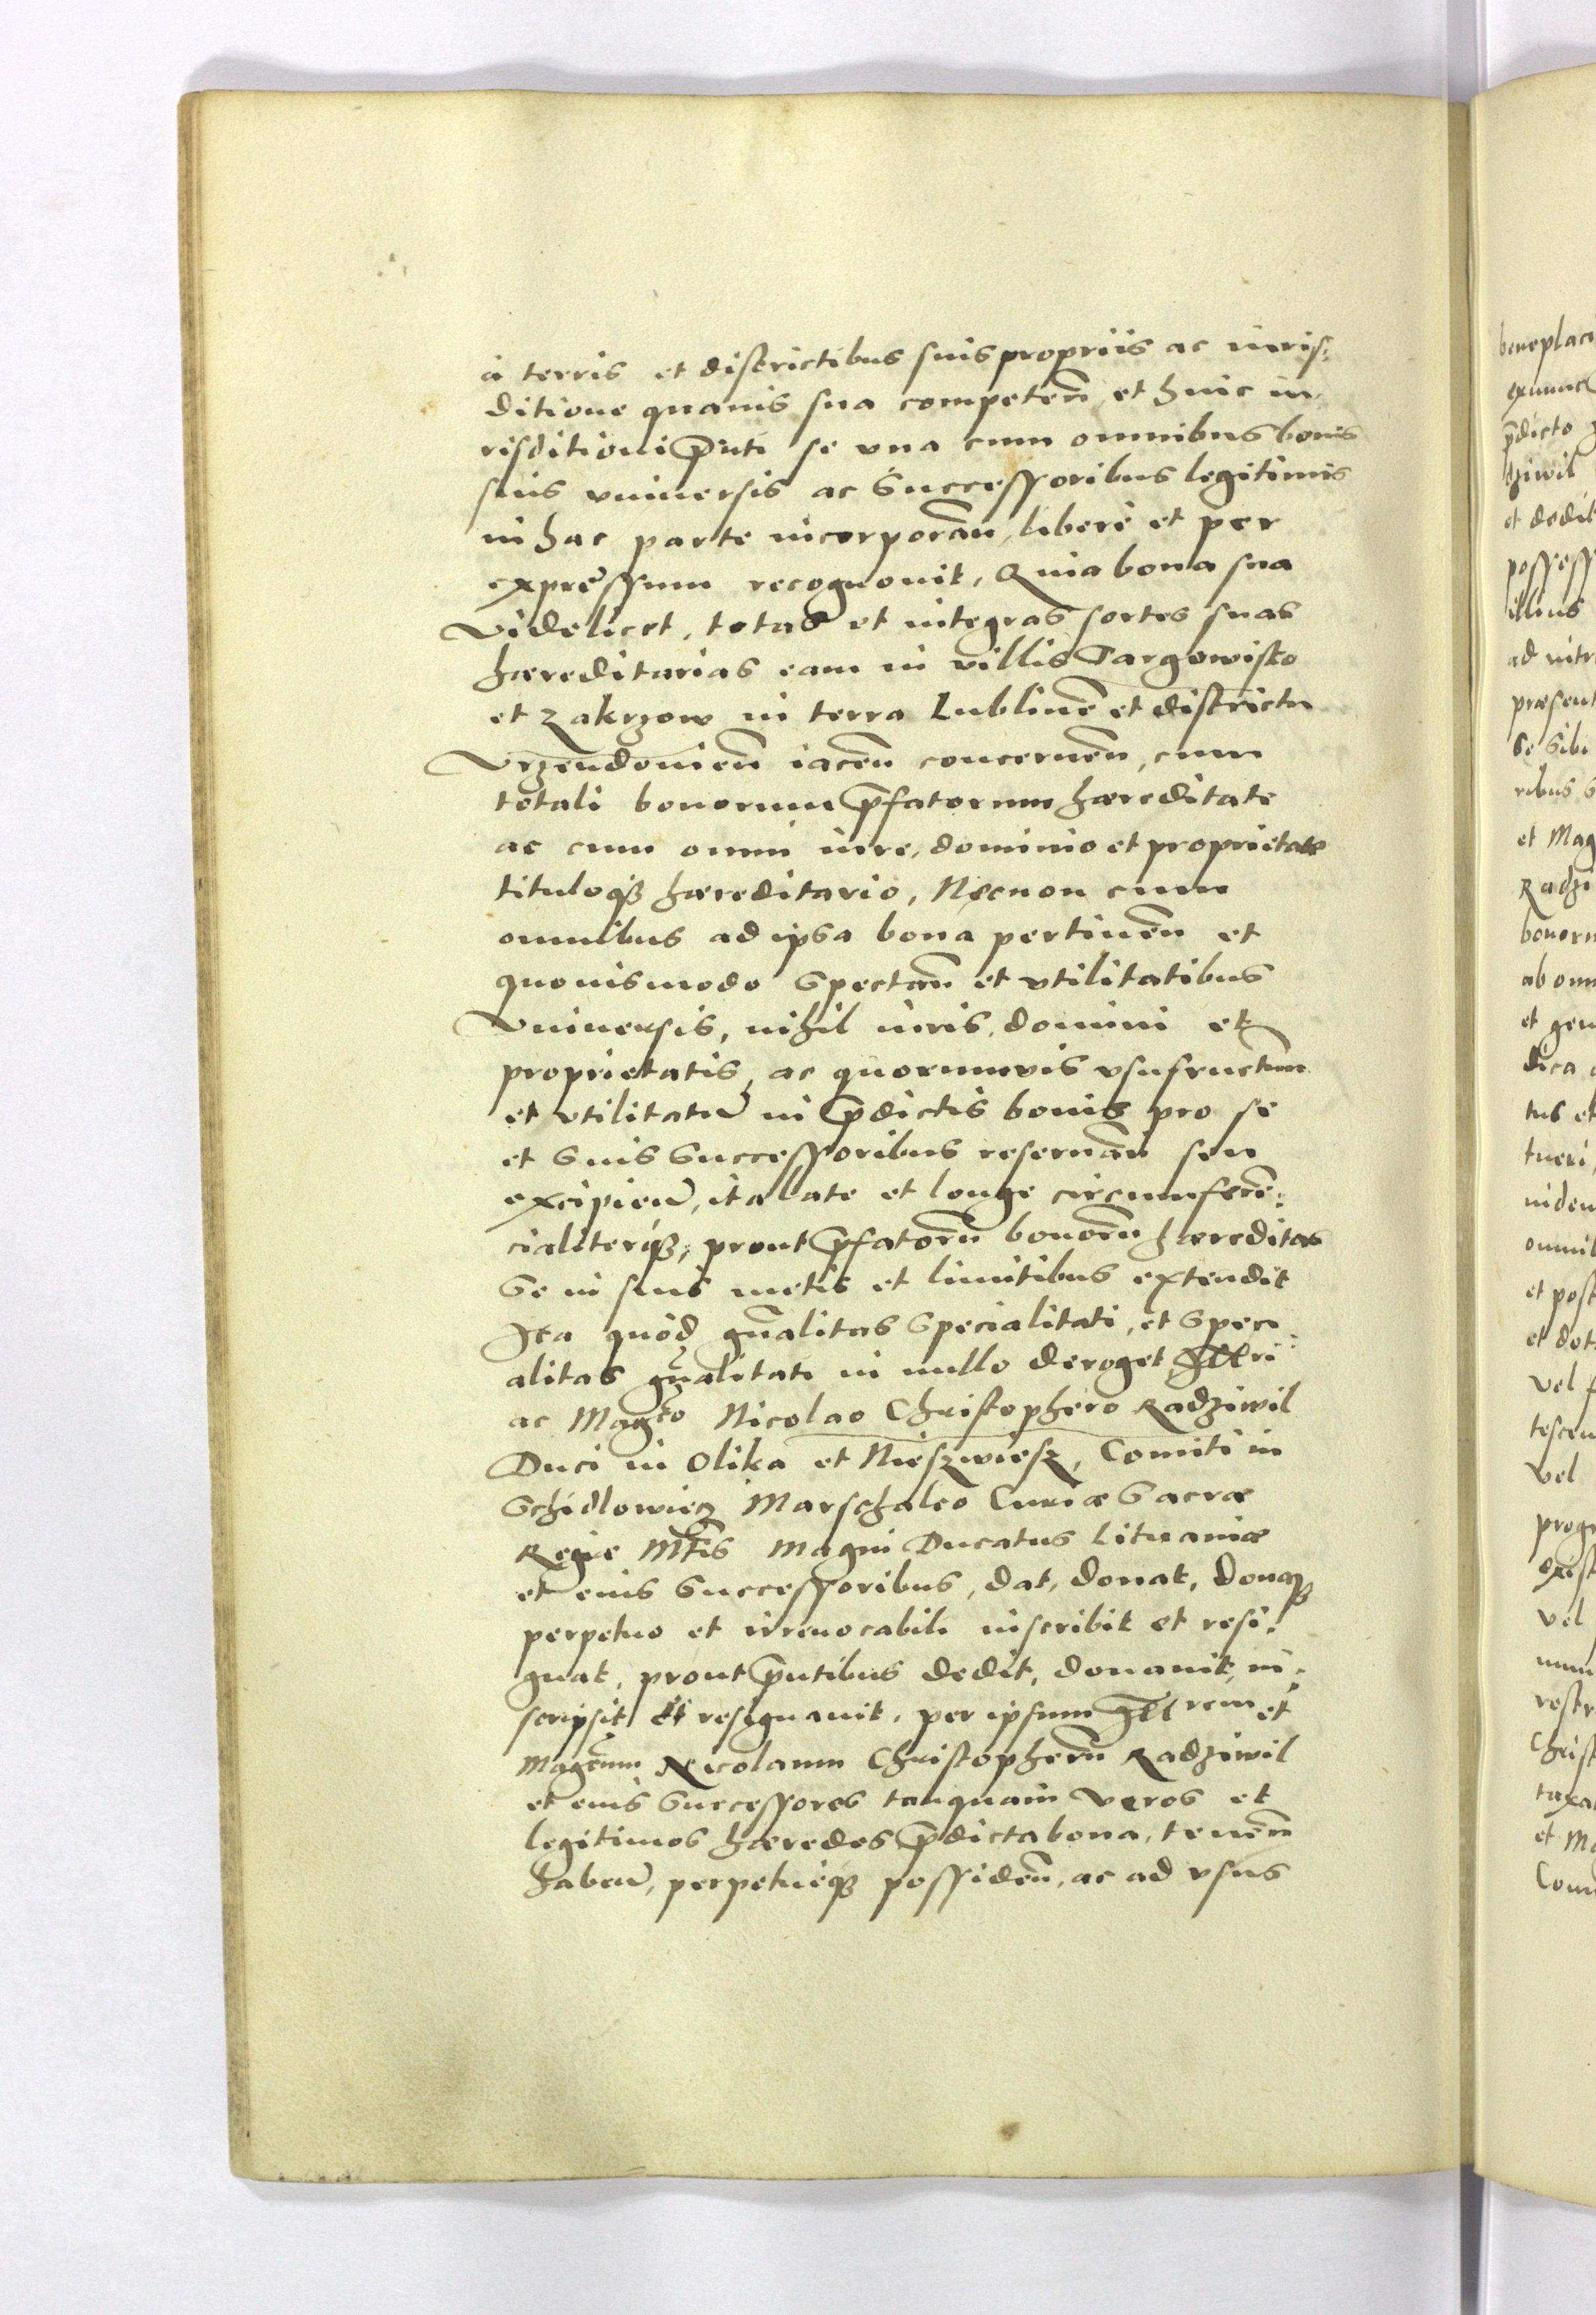 à terris et districtibus suis proprijs ac iuris:
ditione quauis sua competeñ et huic iu-
risditioni p̃nti se vna cum omnibus bonis
suis vniuersis ac Successoribus legitimis
in hac parte incorporañ, liberè et per
expressum recognouit, Quia bona sua
Videlicet, totas et integras sortes suas
hæreditarias eam in villis Targowisko
et Zakrzow in terra Lublineñ et districtu
Vrzendouieñ iaceñ concerneñ, cum
totali bonorum p̃fatorum hæreditate
ac cum omni iure, dominio et proprietate
tituloq́ꝫ hæreditario, Necnon cum
omnibus ad ipsa bona pertineñ et
quouismodo Spectañ et vtilitatibus
Vniuersis, nihil iuris, domini et
proprietatis, ac quorumuis vsufructuum
et vtilitatũ in p̃dictis bonis pro se
et Suis Successoribus reseruañ seu
excipieñ, ita late et longe circumferẽ:
cialiterq́ꝫ, prout p̃fatorũ bonorũ hæreditas
Se in suis metis et limitibus extendit
Ita quòd gñalitas Specialitati, et Speci
alitas gñalitati in nullo deroget, Illri
ac Magco Nicolao Christophero Radziwil
Duci in Olika et Nieszwiesz, Comiti in
Schidlowiecz Marschalco Curiæ Sacræ
Regiæ Mtis Magni Ducatus Lituaniæ
et eius Successoribus, dat, donat, donaqꝫ
perpetuo et irreuocabili inscribit et resi:
gnat, prout p̃ntibus dedit, donauit, in:
scripsit et resignauit, per ipsum Illrem et
Magcum Nicolaum Christopherũ Radziwil
et eius Successores tanquam veros et
legitimos hæredes p̃dicta bona, teneñ
habeñ, perpetueq́ꝫ possideñ, ac ad vsus